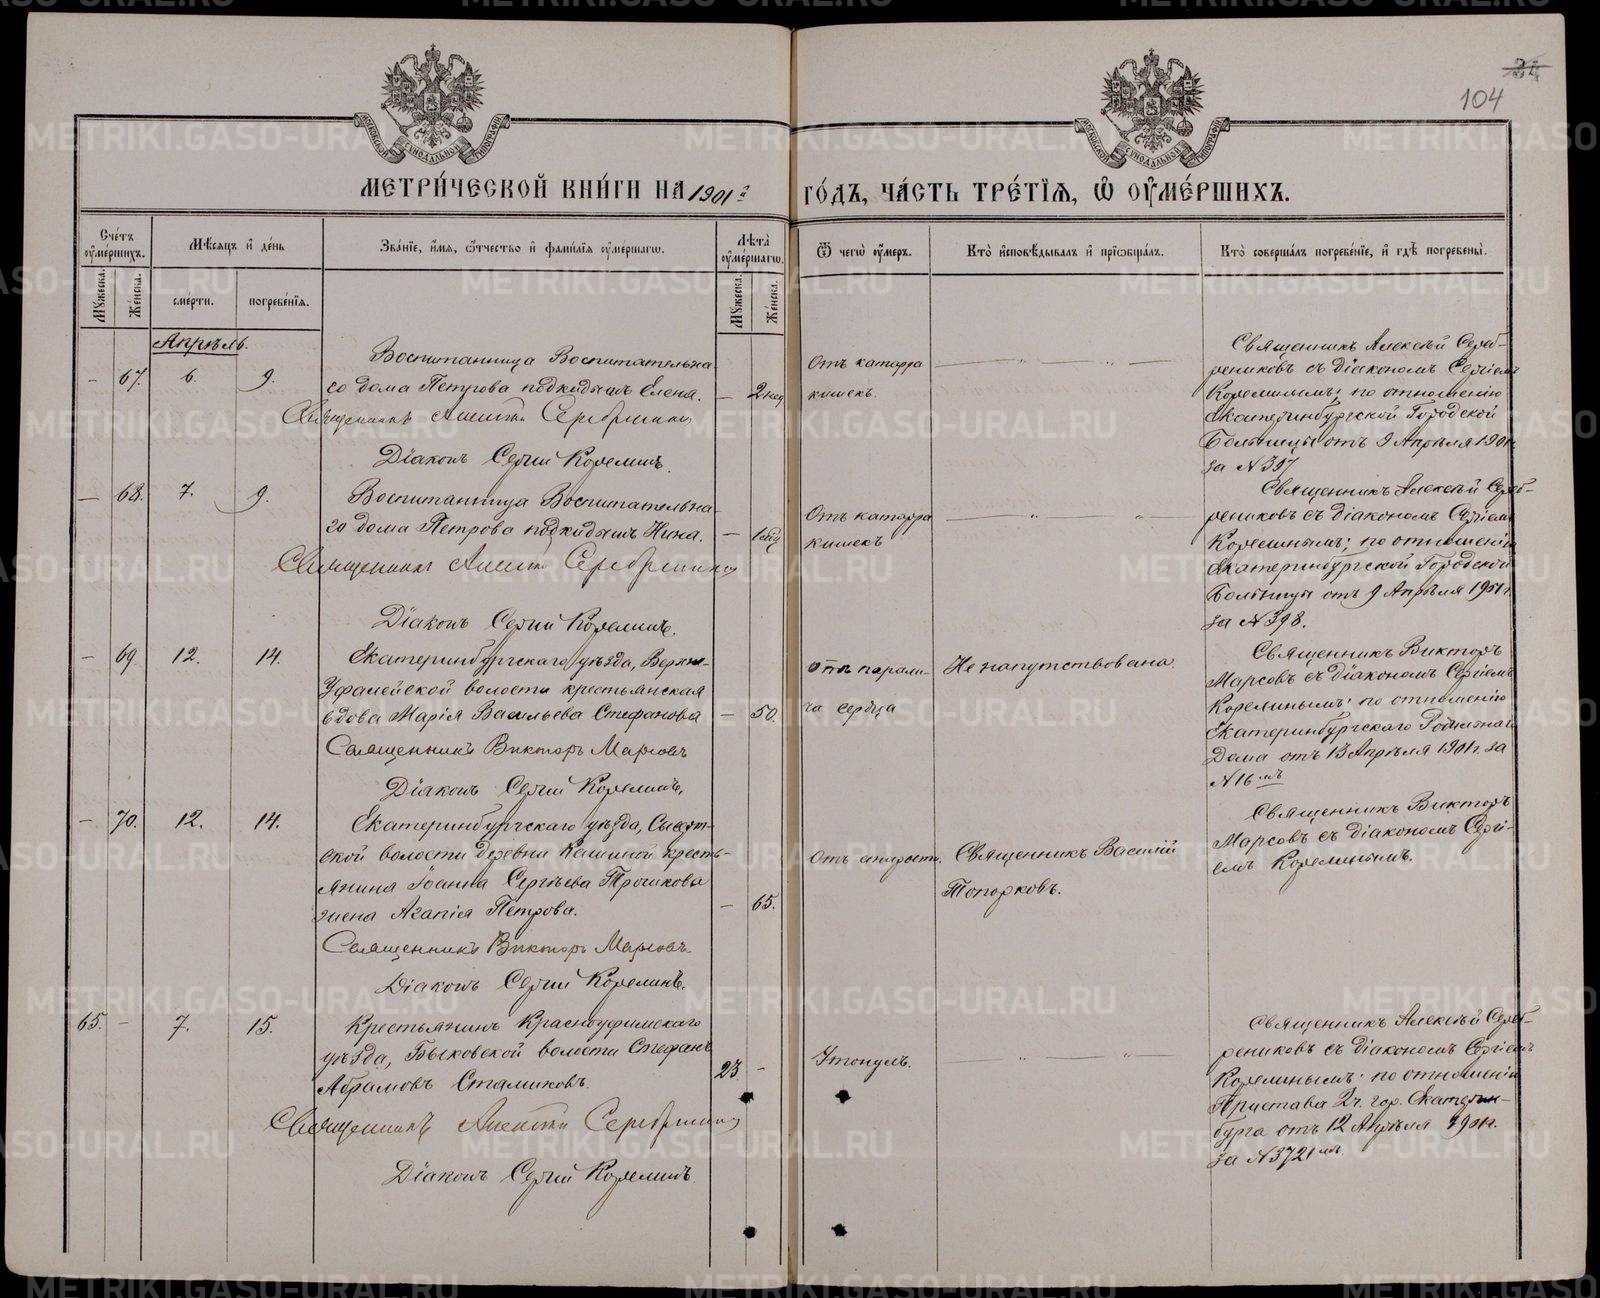 104
МЕТРИ́ЧЕСКОЙ КНИ́ГИ НА 1901й
ГО́ДЪ, ЧА́СТЬ ТРЕ́ТІѦ, Ѡ ОУМЕ́РШИХЪ.
Сче́тъ оуме́ршихъ.
Мѣсѧцъ и де́нь
Зва́нїе, и́мѧ, ѻтчество и фами́лїѧ оуме́ршагѡ.
Лѣта̀ оуме́ршагѡ.
Мꙋжеска.
Же́нска.
сме́рти.
погребе́нїѧ.
Мꙋжеска.
Же́нска.
Ѿ чегѡ̀ оу́меръ.
Кто̀ и҆сповѣ́дывалъ и҆ прїѡбща́лъ.
Кто̀ соверша́лъ погребе́нїе, и҆ гдѣ̀ погребены̀.
Апрѣль.
– 67. 6. 9.
Воспитанница Воспитательна-
го дома Петрова подкидышъ Елена.
– 2 нед
Священникъ Алексѣй Серебрениковъ
Діаконъ Сергій Корелинъ.
Отъ катарра
кишекъ.
Священникъ Алексѣй Сереб-
рениковъ съ діакономъ Сергіемъ
Корелинымъ; по отношенію
Екатеринбургской Городской
Больницы отъ 9 Апрѣля 1901 г.
за № 397
– 68. 7. 9.
Воспитанница Воспитательна-
го дома Петрова подкидышъ Нина.
Священникъ Алексѣй Серебрениковъ
Діаконъ Сергій Корелинъ.
Отъ катарра
кишекъ
Священникъ Алексѣй Сереб-
рениковъ съ діакономъ Сергіемъ
Корелинымъ; по отношенію
Екатеринбургской Городской
Больницы отъ 9 Апрѣля 1901 г.
за № 398.
– 69 12. 14.
Екатеринбургскаго уѣзда, Верхне-
Уфалейской волости крестьянская
вдова Марія Васильева Стефанова
– 50.
Священникъ Викторъ Марсовъ
Діаконъ Сергій Корелинъ.
отъ парали-
ча сердца
Не напутствована.
Священникъ Викторъ
Марсовъ съ діакономъ Сергіемъ
Корелинымъ; по отношенію
Екатеринбургскаго Родильнаго
Дома отъ 13 Апрѣля 1901 г. за
№ 16мъ
– 70. 12. 14.
Екатеринбургскаго уѣзда, Сысерт-
ской волости деревни Кашиной кресть-
янина Іоанна Сергѣева Трошкова
жена Агапія Петрова.
– 65.
Священникъ Викторъ Марсовъ
Діаконъ Сергій Корелинъ.
Отъ старости.
Священникъ Василій
Топорковъ.
Священникъ Викторъ
Марсовъ съ діакономъ Сергі-
емъ Корелинымъ.
65. – 7. 15.
Крестьянинъ Красноуфимскаго
уѣзда, Быковской волости Стефанъ
Абрамовъ Стамиковъ.
23. –
Священникъ Алексѣй Серебрениковъ
Діаконъ Сергій Корелинъ
Утонулъ.
Священникъ Алексѣй Сереб-
рениковъ съ діакономъ Сергіемъ
Корелинымъ; по отношенію
Пристава 2 ч. гор. Екатерин-
бурга отъ 12 Апрѣля 1901 г.
за № 3721мъ
METRIKI.GASO-URAL.RU